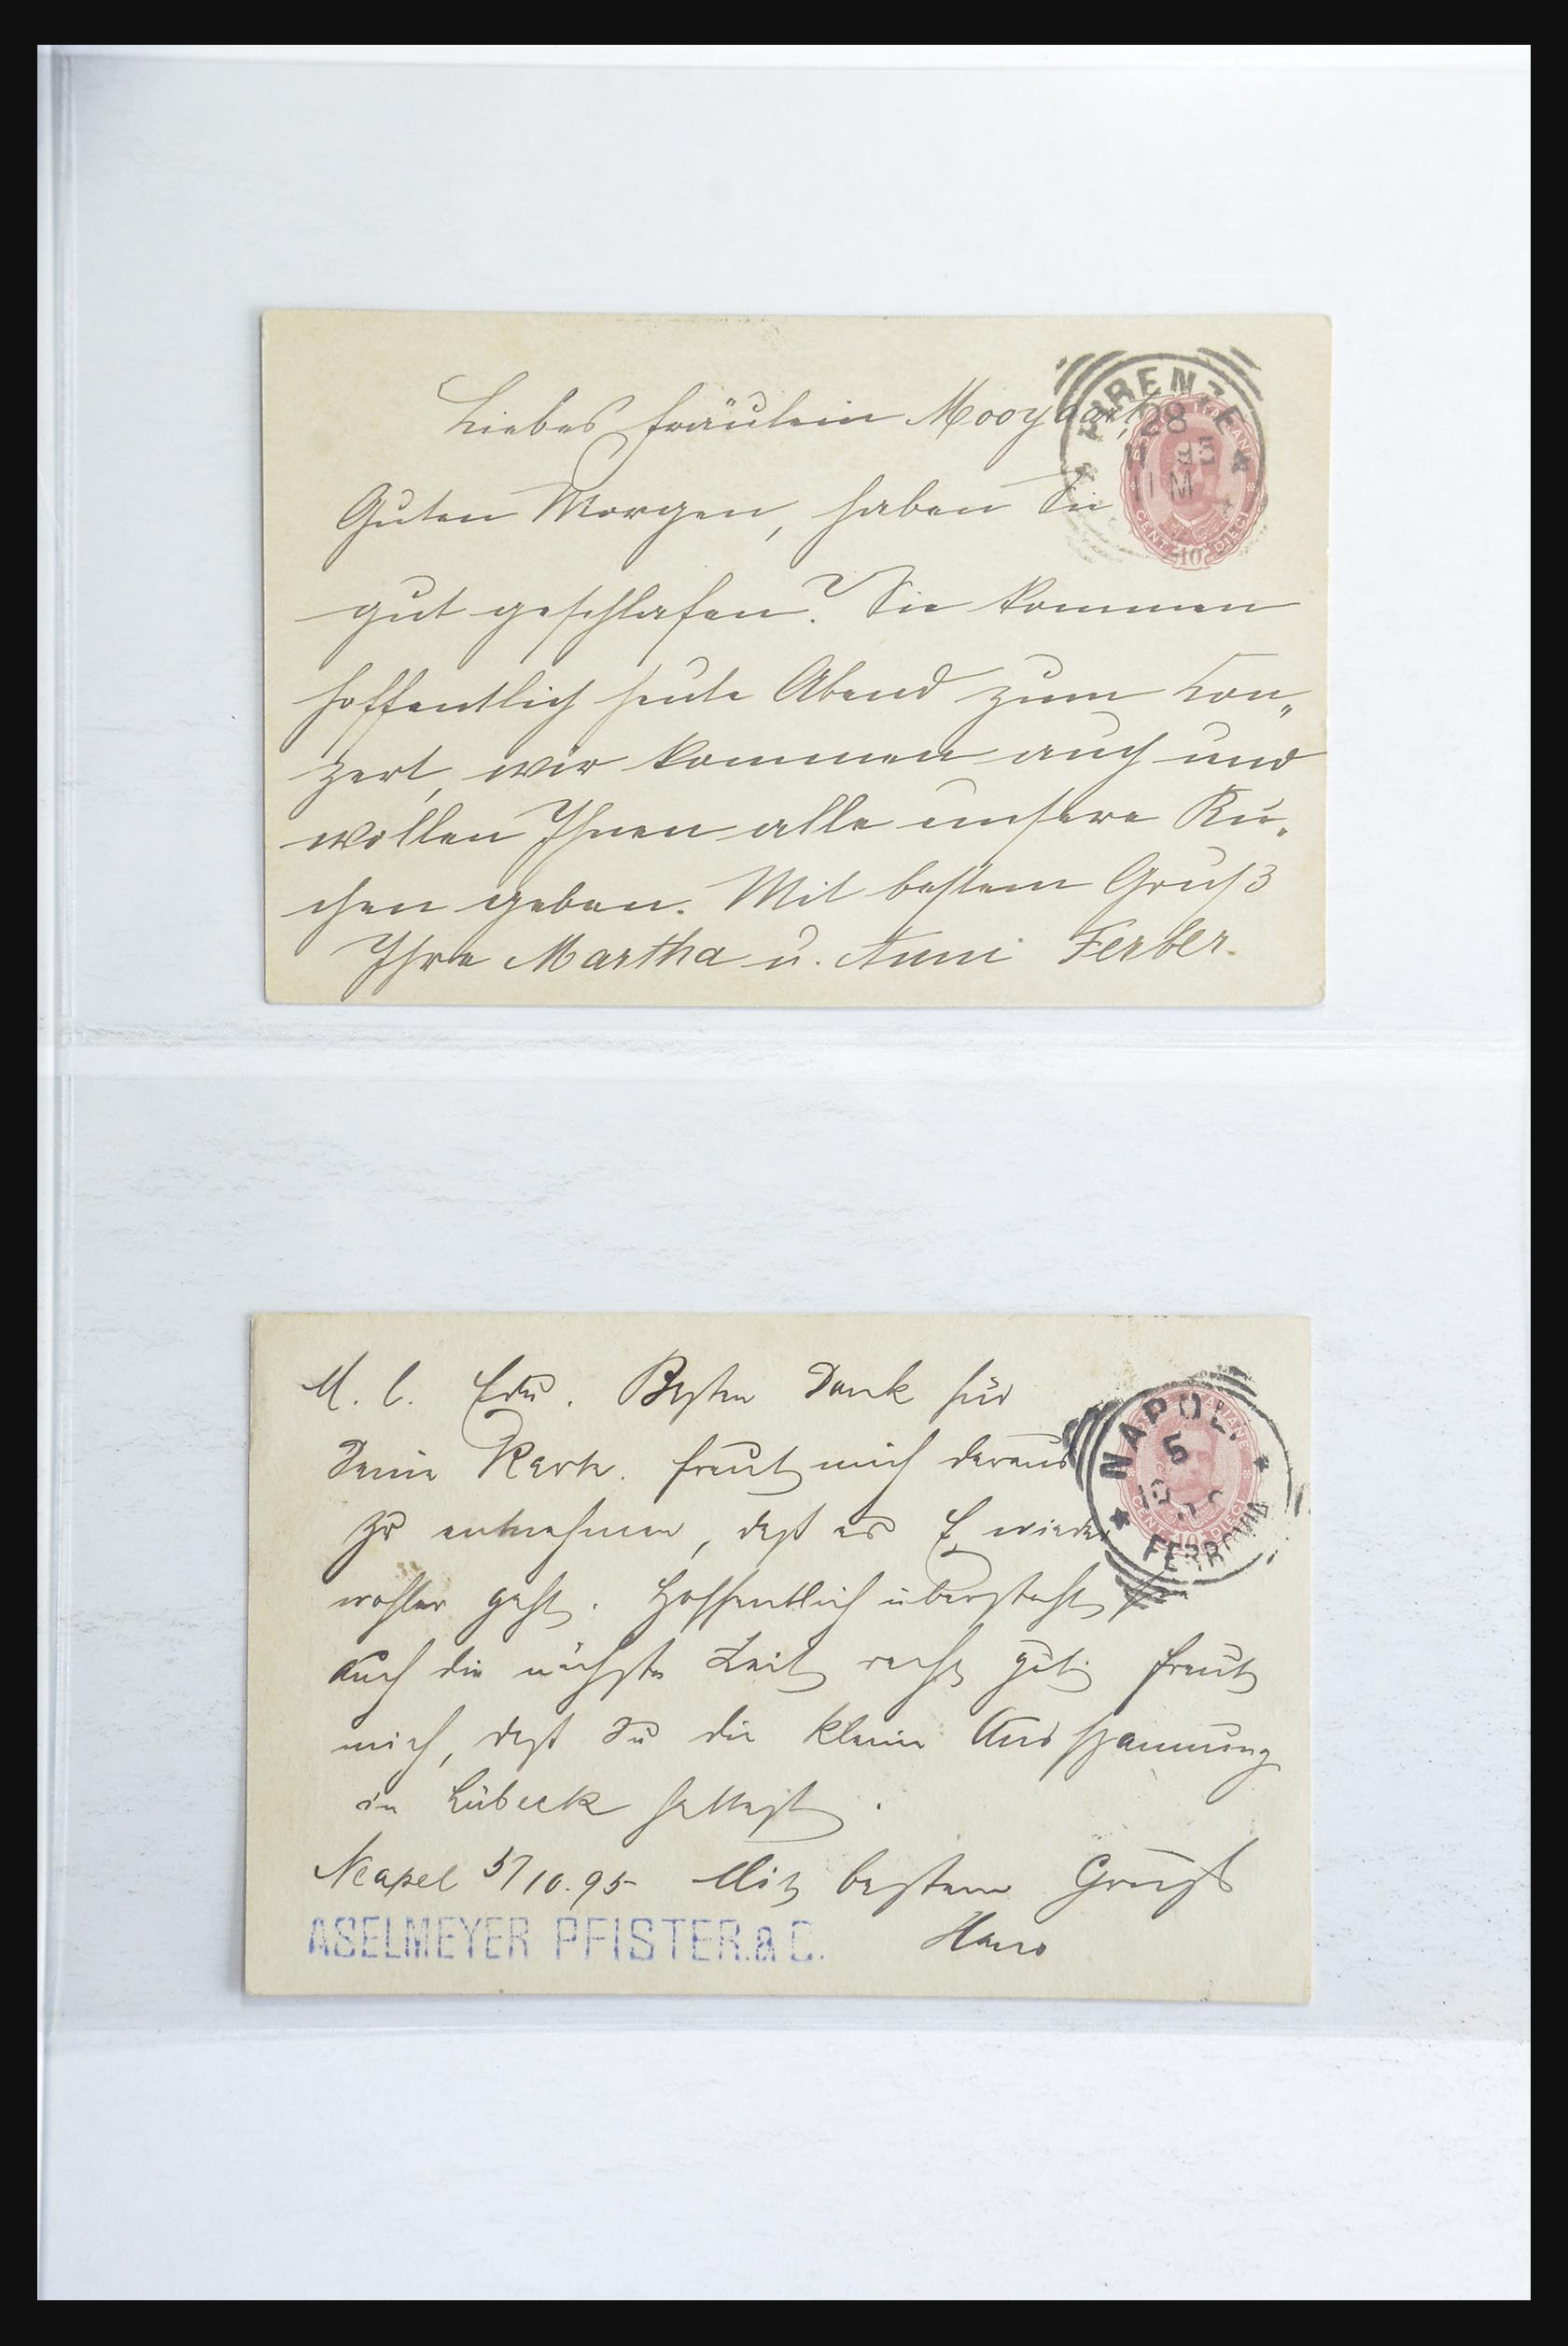 Liebes Fräulein Mooyaart,
Guten Morgen, haben Sie
gut geschlafen? Sie kommen
hoffentlich heute Abend zum Kon„
zert, wir kommen auch und
wollen Ihnen alle unsere Ku„
chen geben. Mit bestem Gruß
Ihre Martha u. Anni Ferber.
FIRENZE
28
95
11 M
CENT. 10 DIECI
M. l. Edu. Besten Dank für
Deine Karte. freut mich daraus
zu entnehmen, daß es E. wieder
wohler geht. Hoffentlich übersteht sie
auch die nächste Zeit recht gut. freut
mich, daß Du die kleine Ausspannung
in Lübeck hattest.
Neapel 5/10.95 Mit bestem Gruß
Hans
ASELMEYER PFISTER.& C.
NAPOLI
5
10
FERROVIA
CENT. 10 DIECI